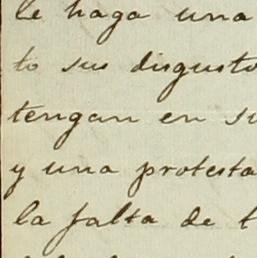 le haga una
to sus disgusto
tengan en su
y una protesta
la falta de t